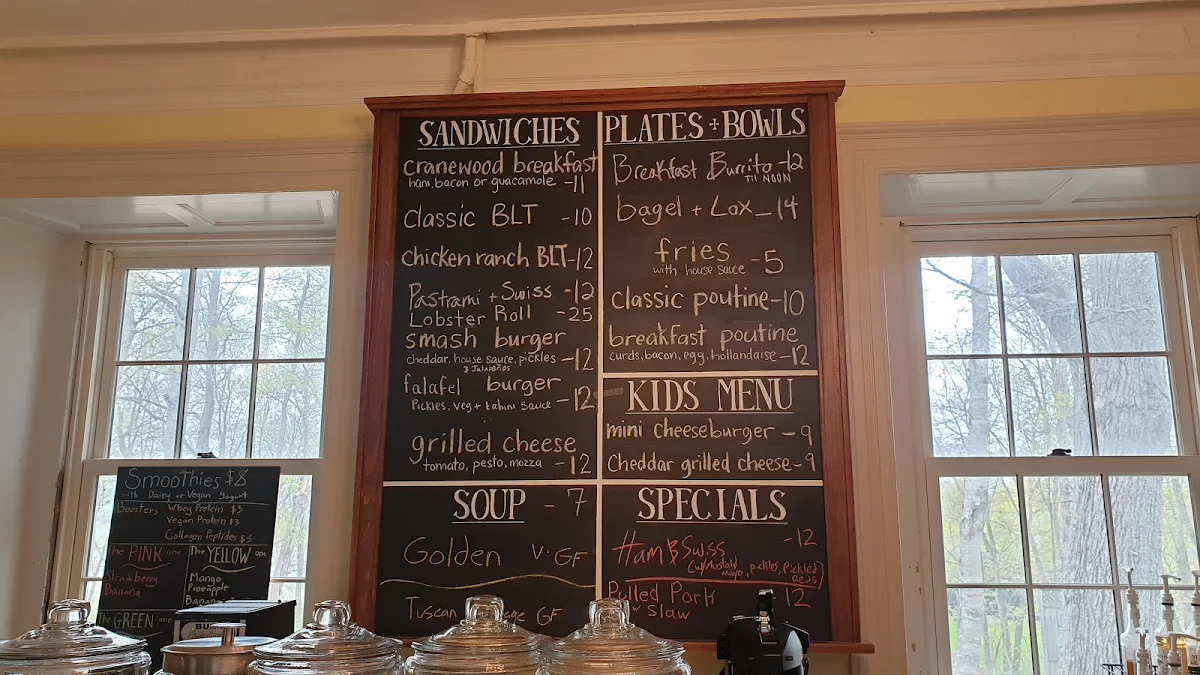 SANDWICHES
cranewood breakfast
ham, bacon or guacamole -11
classic BLT -10
chicken ranch BLT-12
Pastrami + Swiss -12
Lobster Roll -25
smash burger
cheddar, house sauce, pickles -12
& Jalapeños
falafel burger
Pickles, veg + tahini sauce -12
grilled cheese
tomato, pesto, mozza -12
SOUP - 7
Golden V. GF
Tuscan GF
PLATES + BOWLS
Breakfast Burrito -12
Til NOON
bagel + Lox - 14
fries
with house sauce -5
Classic poutine-10
breakfast poutine
curds, bacon, egg, hollandaise -12
KIDS MENU
mini cheeseburger - 9
Cheddar grilled cheese - 9
SPECIALS
Ham & Swiss -12
pickles, pickled
Pulled Pork 12
Slaw
Smoothies $8
with Dairy or Vegan Yogurt
Boosters Whey Protein $3
Vegan Protein $3
Collagen Peptides $3
The PINK one
Strawberry
Banana
The YELLOW one
Mango
Pineapple
Banana
The GREEN one